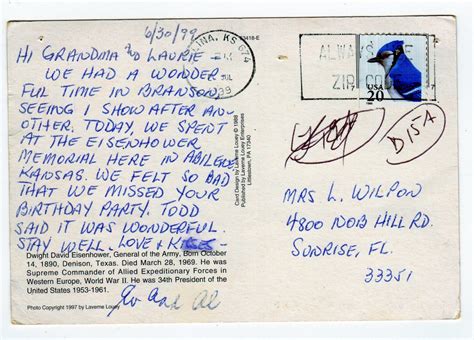 6/30/99
HI GRANDMA AND LAURIE -
WE HAD A WONDER
FUL TIME IN BRANSON
SEEING 1 SHOW AFTER AN-
OTHER. TODAY, WE SPENT
AT THE EISENHOWER
MEMORIAL HERE IN ABILENE
KANSAS. WE FELT SO BAD
THAT WE MISSED YOUR
BIRTHDAY PARTY. TODD
SAID IT WAS WONDERFUL.
STAY WELL. LOVE &
And Al
Dwight David Eisenhower, General of the Army. Born October
14, 1890, Denison, Texas. Died March 28, 1969. He was
Supreme Commander of Allied Expeditionary Forces in
Western Europe, World War II. He was 34th President of the
United States 1953-1961.
Photo Copyright 1997 by Laverne Louey
Card Design by Laverne Louey © 1988
Published by Laverne Louey Enterprises
Littlestown, PA 17340
KS 674
ALWAYS USE
ZIP CODE
USA
20
D15A
MRS L. WILPON
4800 NOB HILL RD.
SUNRISE, FL.
33351